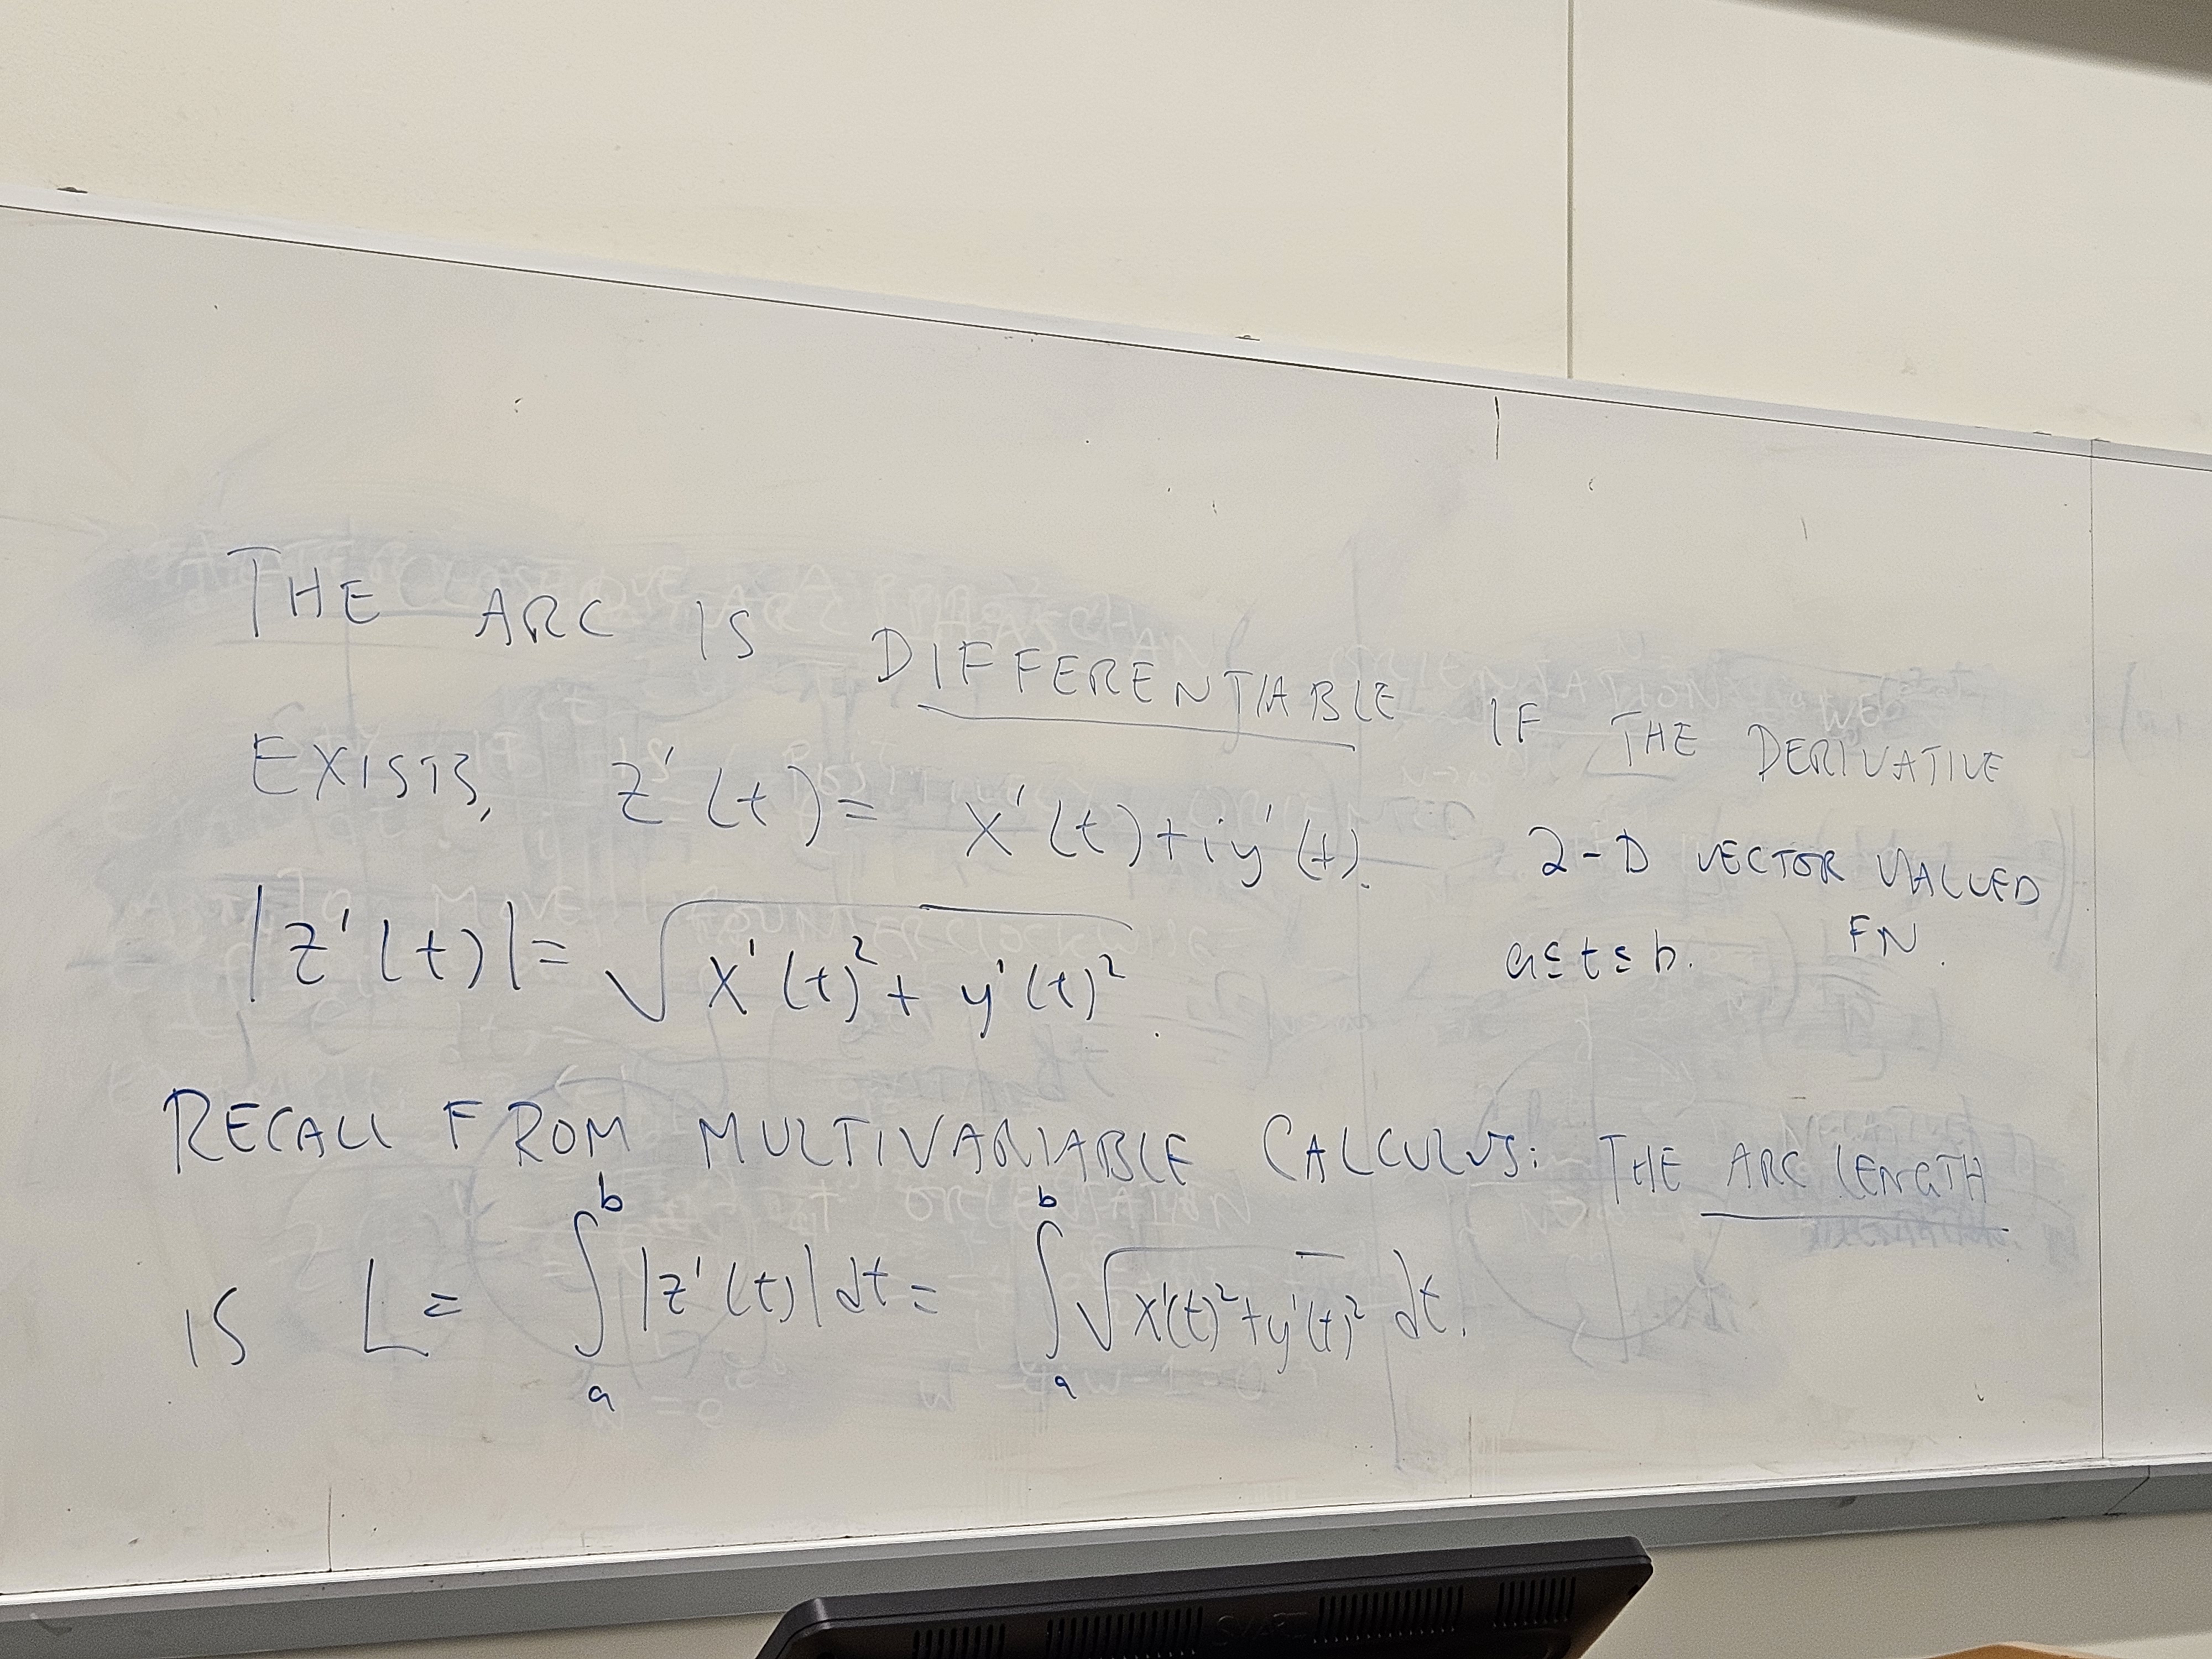 THE ARC IS DIFFERENTIABLE IF THE DERIVATIVE
EXISTS, z'(t) = x'(t)+iy'(t). 2-D VECTOR VALUED
FN.
|z'(t)| = √(x'(t)²+ y'(t)²). a≤t≤b.
RECALL FROM MULTIVARIABLE CALCULUS: THE ARC LENGTH
IS L = ∫_a^b |z'(t)|dt = ∫_a^b √(x'(t)²+y'(t)²) dt.